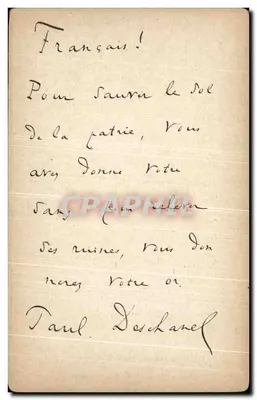 Français!
Pour sauver le sol
de la patrie, vous
avez donné votre
sang pour relever
ses ruines, vous don
nerez votre or.
Paul Deschanel
CPAPHIL